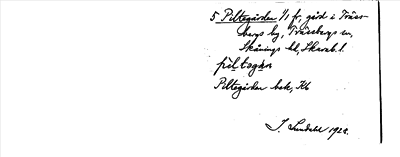 5 Piltegården 1/1 fr, gård i Träss-
bergs by, Trässbergs sn,
Skånings hd, Skarab. l.
piltagån
Piltegården bek, Kb
J. Lundahl 1928.